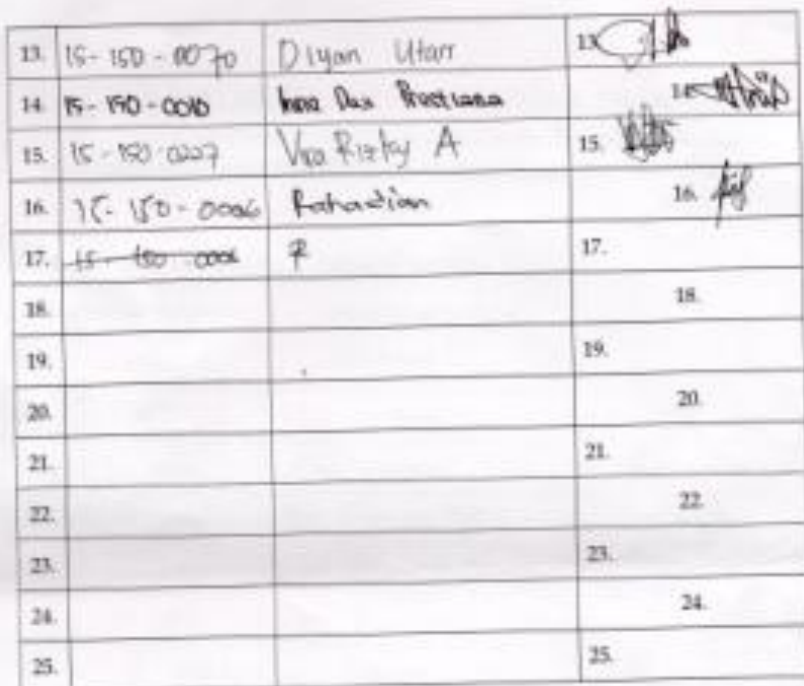 13. 15-150-0070 Diyan Utari 13.
14. 15-150-0010 Dwi 14.
15. 15-150-0227 Vira Rizky A 15.
16. 15-150-0006 Rahadian 16.
17. 15-150-0006 R 17.
18. 18.
19. 19.
20. 20.
21. 21.
22. 22.
23. 23.
24. 24.
25. 25.